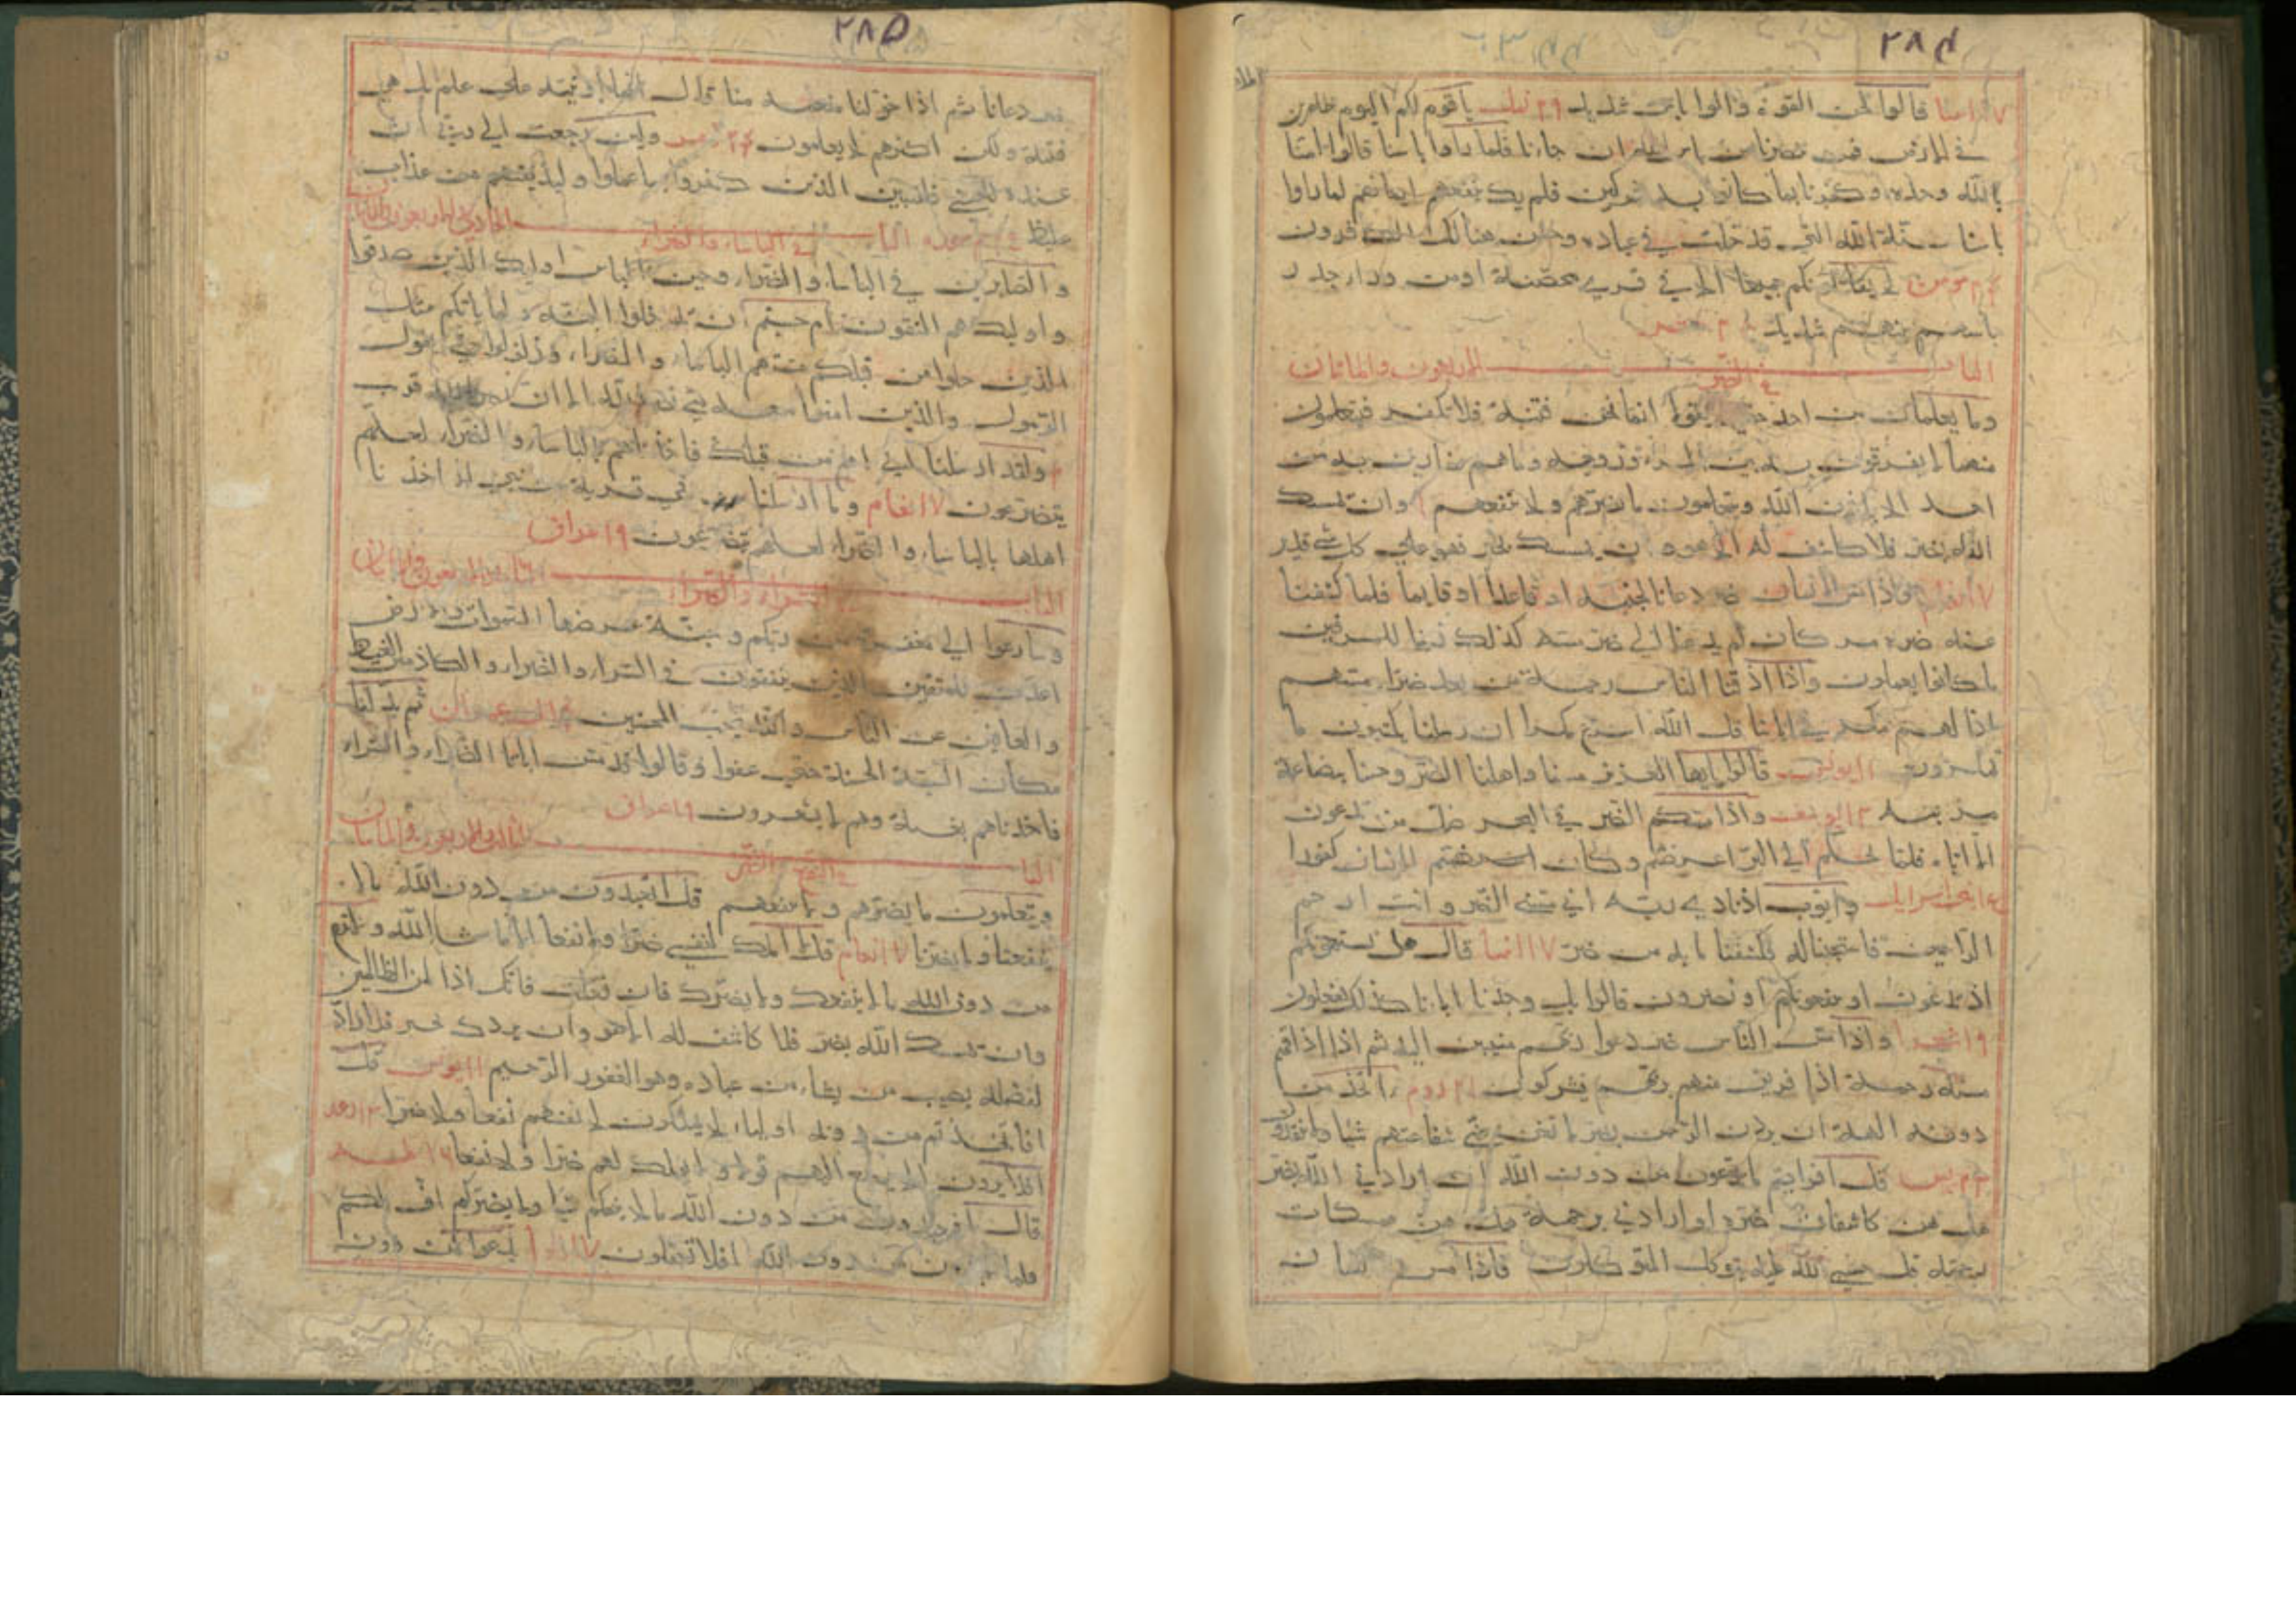 ٢٨٤
قالوا نحن القوة والوا باس شديد ٢٩ نمل يا قوم لكم اليوم ظاهرين
في الارض فمن ينصرنا من باس الله ان جاءنا فلما راوا باسنا قالوا امنا
بالله وحده وكفرنا بما كانوا به مشركين فلم يك ينفعهم ايمانهم لما راوا
باسنا سنة الله التي قد خلت في عباده وخسر هنالك الكافرون
٢٤ مومن لا يقاتلونكم جميعا الا في قرى محصنة او من وراء جدر
باسهم بينهم شديد
الباب في الضر الاربعون والماتان
وما يعلمان من احد حتي يقولا انما نحن فتنة فلا تكفر فيتعلمون
منهما ما يفرقون به بين المرء وزوجه وما هم بضارين به من
احد الا باذن الله ويتعلمون ما يضرهم ولا ينفعهم وان يمسك
الله بضر فلا كاشف له الا هو وان يمسك بخير فهو علي كل شي قدير
٧ انعام واذا مس الانسان ضر دعانا لجنبه او قاعدا او قايما فلما كشفنا
عنه ضره مر كان لم يدعنا الي ضر مسه كذلك زين للمسرفين
ما كانوا يعملون واذا اذقنا الناس رحمة من بعد ضراء مستهم
اذا لهم مكر في اياتنا قل الله اسرع مكرا ان رسلنا يكتبون ما
تمكرون ١١ يونس قالوا يا ايها العزيز مسنا واهلنا الضر وجئنا ببضاعة
مزجية ١٣ يوسف واذا مسكم الضر في البحر ضل من تدعون
الا اياه فلما نجيكم الي البر اعرضتم وكان الانسان كفورا
١٥ بني اسرايل وايوب اذ نادي ربه اني مسني الضر وانت ارحم
الراحمين فاستجبنا له فكشفنا ما به من ضر ١٧ انبيا قال هل يسمعونكم
اذ تدعون او ينفعونكم او يضرون قالوا بل وجدنا اباءنا كذلك يفعلون
١٩ شعرا واذا مس الناس ضر دعوا ربهم منيبين اليه ثم اذا اذاقهم
منه رحمة اذا فريق منهم بربهم يشركون ٢١ روم ءاتخذ من
دونه الهة ان يردن الرحمن بضر لا تغن عني شفاعتهم شيئا ولا ينقذون
٢٣ يس قل افرايتم ما تدعون من دون الله ان ارادني الله بضر
هل هن كاشفات ضره او ارادني برحمة هل هن ممسكات
رحمته قل حسبي الله عليه يتوكل المتوكلون فاذا مس الانسان
٢٨٥
ضر دعانا ثم اذا خولناه نعمة منا قال انما اوتيته علي علم بل هي
فتنة ولكن اكثرهم لا يعلمون ٢٤ زمر ولئن رجعت الي ربي ان
عنده للحسني فلننبئن الذين كفروا بما عملوا ولنذيقنهم من عذاب
غليظ الباب في الباساء والضراء الحادي والاربعون والماتان
والصابرين في الباساء والضراء وحين الباس اوليك الذين صدقوا
واوليك هم المتقون ام حسبتم ان تدخلوا الجنة ولما ياتكم مثل
الذين خلوا من قبلكم مستهم الباساء والضراء وزلزلوا حتي يقول
الرسول والذين امنوا معه متي نصر الله الا ان نصر الله قريب
ولقد ارسلنا الي امم من قبلك فاخذناهم بالباساء والضراء لعلهم
يتضرعون ٧ انعام وما ارسلنا في قرية من نبي الا اخذنا
اهلها بالباساء والضراء لعلهم يضرعون ٩ اعراف
الباب في السراء والضراء الثاني والاربعون والماتان
وسارعوا الي مغفرة من ربكم وجنة عرضها السموات والارض
اعدت للمتقين الذين ينفقون في السراء والضراء والكاظمين الغيظ
والعافين عن الناس والله يحب المحسنين ٤ ال عمران ثم بدلنا
مكان السيئة الحسنة حتي عفوا وقالوا قد مس اباءنا الضراء والسراء
فاخذناهم بغتة وهم لا يشعرون ٩ اعراف
الباب في النفع والضر الثالث والاربعون والماتان
ويتعلمون ما يضرهم ولا ينفعهم قل اتعبدون من دون الله ما لا
ينفعنا ولا يضرنا ٧ انعام قل لا املك لنفسي ضرا ولا نفعا الا ما شاء الله ولا تدع
من دون الله ما لا ينفعك ولا يضرك فان فعلت فانك اذا من الظالمين
وان يمسك الله بضر فلا كاشف له الا هو وان يردك بخير فلا راد
لفضله يصيب من يشاء من عباده وهو الغفور الرحيم ١١ يونس قل
افاتخذتم من دونه اولياء لا يملكون لانفسهم نفعا ولا ضرا ١٣ رعد
افلا يرون الا يرجع اليهم قولا ولا يملك لهم ضرا ولا نفعا ١٦ طه
قال افتعبدون من دون الله ما لا ينفعكم شيئا ولا يضركم اف لكم
ولما تعبدون من دون الله افلا تعقلون ١٧ انبيا يدعوا من دون